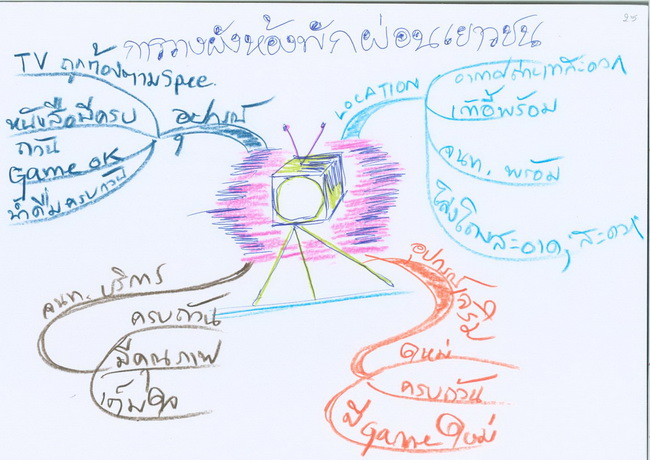 การวางผังห้องพักผ่อนเยาวชน
25
TV ถูกต้องตาม Spec.
หนังสือมีครบ
ถ้วน
Game OK
น้ำดื่มครบถ้วน
อุปกรณ์
LOCATION
อากาศถ่ายเทสะดวก
เก้าอี้พร้อม
จนท. พร้อม
โล่งโถงสะอาด, สะดวก
จนท. บริการ
ครบถ้วน
มีคุณภาพ
เต็มใจ
อุปกรณ์
ใหม่
ครบถ้วน
มี game ใหม่